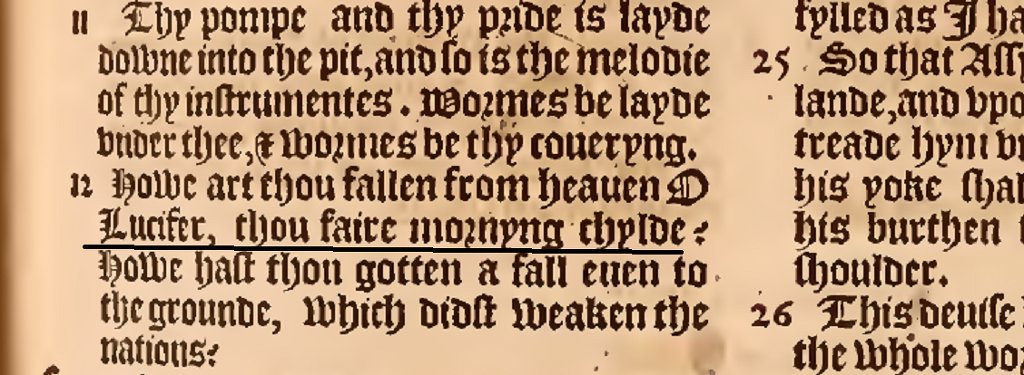 11 Thy pompe and thy pride is layde
downe into the pit, and so is the melodie
of thy instrumentes. Wormes be layde
vnder thee, & wormes be thy coueryng.
12 Howe art thou fallen from heauen O
Lucifer, thou faire mornyng chylde?
howe hast thou gotten a fall euen to
the grounde, which didst weaken the
nations?
fylled as I ha
25 So that Ass
lande, and vpo
treade hym vn
his yoke shal
his burthen
shoulder.
26 This deuise
the whole wo